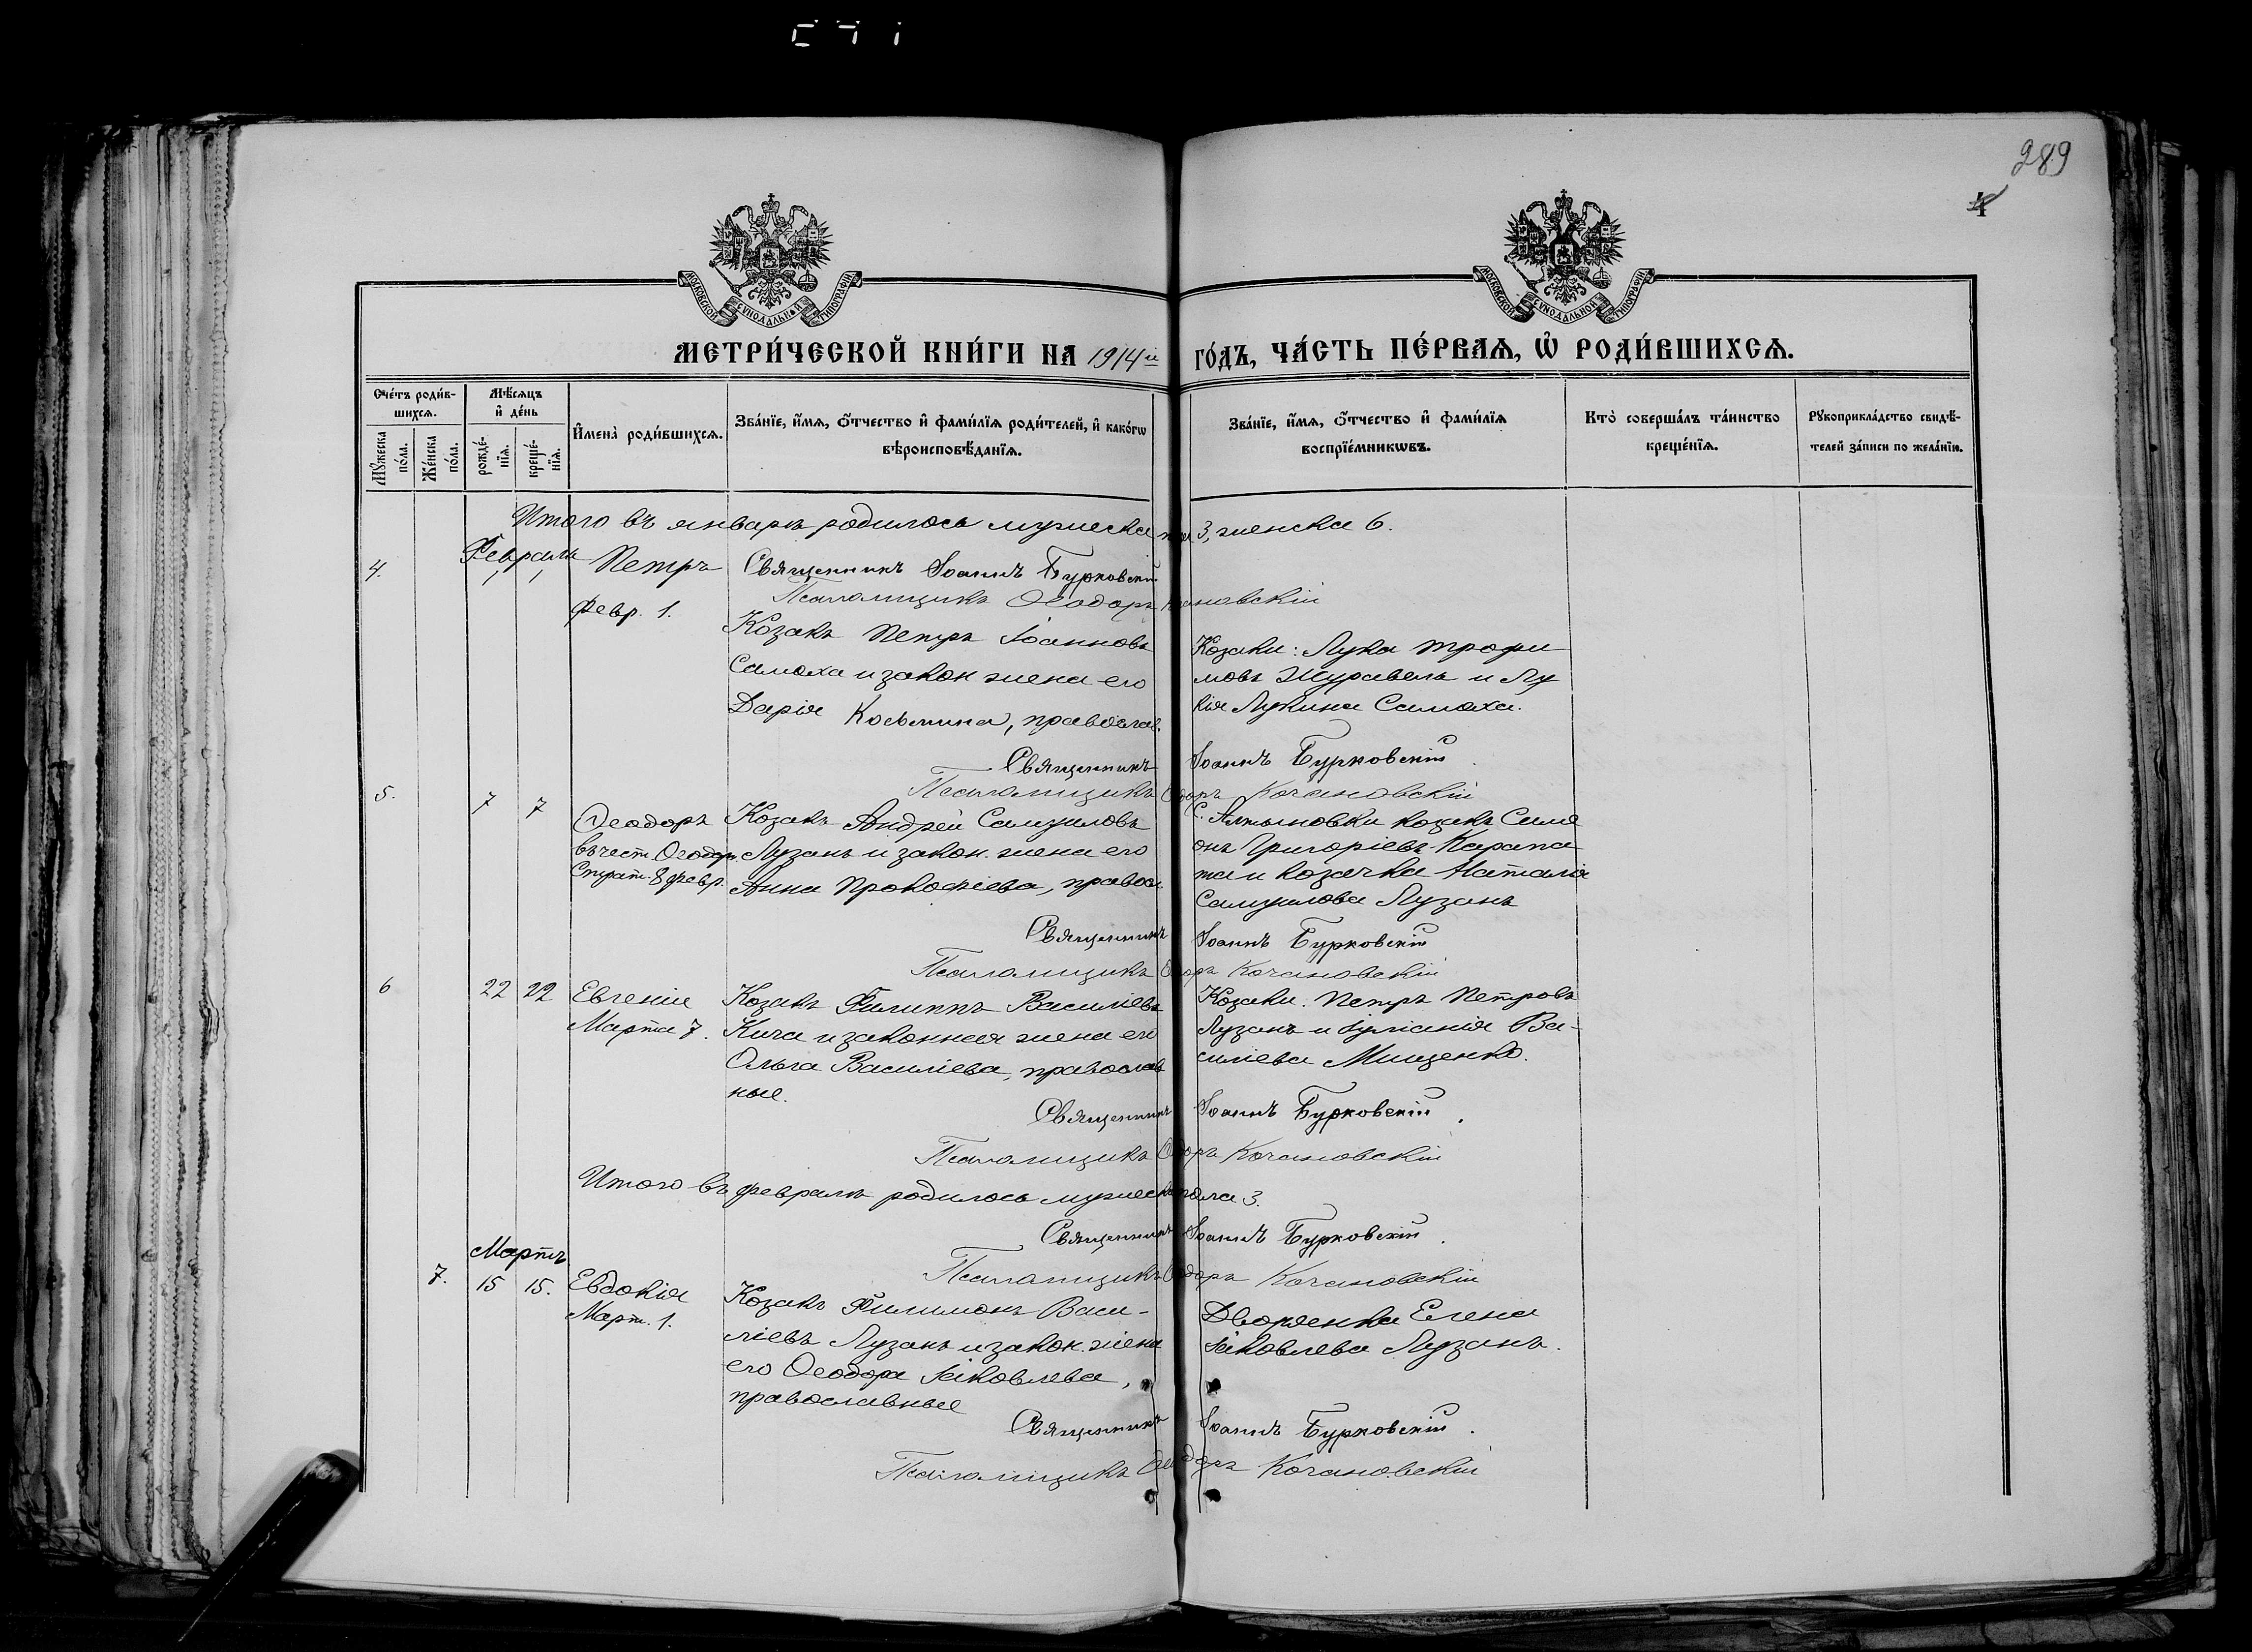 289
4
МОСКОВСКОЙ СѴНОДАЛЬНОЙ ТИПОГРАФІИ
МОСКОВСКОЙ СѴНОДАЛЬНОЙ ТИПОГРАФІИ
МЕТРИ́ЧЕСКОЙ КНИ́ГИ НА 1914й ГО́ДЪ, ЧА́СТЬ ПЕ́РВАЯ, Ѡ҆ РОДИ́ВШИХСЯ.
Сче́тъ роди́в-
шихся.
Мꙋ́жеска по́ла.
Же́нска по́ла.
Мѣ́сяцъ
и҆ де́нь
рожде́-
нїя.
креще́-
нїя.
И҆мена̀ роди́вшихся.
Зва́нїе, и҆́мя, ѻ҆́тчество и҆ фами́лїя роди́телей, и҆ како́гѡ
вѣроисповѣ́данїя.
Зва́нїе, и҆́мя, ѻ҆́тчество и҆ фами́лїя
воспрїе́мникѡвъ.
Кто̀ соверша́лъ та́инство
креще́нїя.
Рꙋкоприкла́дство свидѣ́-
телей за́писи по жела́нїю.
Итого въ январѣ родилось мужеска пола 3, женска 6.
Священникъ Іоаннъ Бурковскій
Псаломщикъ Ѳеодоръ Кочановскій
Февраль
4. 1 1 Петръ
Февр. 1.
Козакъ Петръ Іоанновъ
Самоха и закон жена его
Дарія Косьмина, православ.
Козаки: Лука Трофи
мовъ Журавель и Лу
кія Лукина Самоха.
Священникъ Іоаннъ Бурковскій.
Псаломщикъ Ѳеодоръ Кочановскій
5. 7 7 Ѳеодоръ
въ чест. Ѳеодор.
Страт. 8 февр.
Козакъ Андрей Самуиловъ
Лузанъ и закон. жена его
Анна Прокофіева, правосл
С. Алтыновки козакъ Симе
онъ Григоріевъ Карапа
та и козачка Наталія
Самуилова Лузанъ
Священникъ Іоаннъ Бурковскій
Псаломщикъ Ѳеодоръ Кочановскій
6 22 22 Евгеній
Марта 7.
Козакъ Филиппъ Василіевъ
Кича и законная жена его
Ольга Василіева, православ
ные.
Козаки. Петръ Петровъ
Лузанъ и Іуліанія Ва-
силіева Мищенко.
Священникъ Іоаннъ Бурковскій.
Псаломщикъ Ѳеодоръ Кочановскій
Итого въ февралѣ родилось мужеска пола 3.
Священникъ Іоаннъ Бурковскій.
Псаломщикъ Ѳеодоръ Кочановскій
Мартъ
7. 15 15. Евдокія
Март. 1.
Козакъ Филимонъ Васи-
ліевъ Лузанъ и закон. жена
его Ѳеодора Іаковлева,
православные
Дворянка Елена
Іаковлева Лузанъ.
Священникъ Іоаннъ Бурковскій.
Псаломщикъ Ѳеодоръ Кочановскій